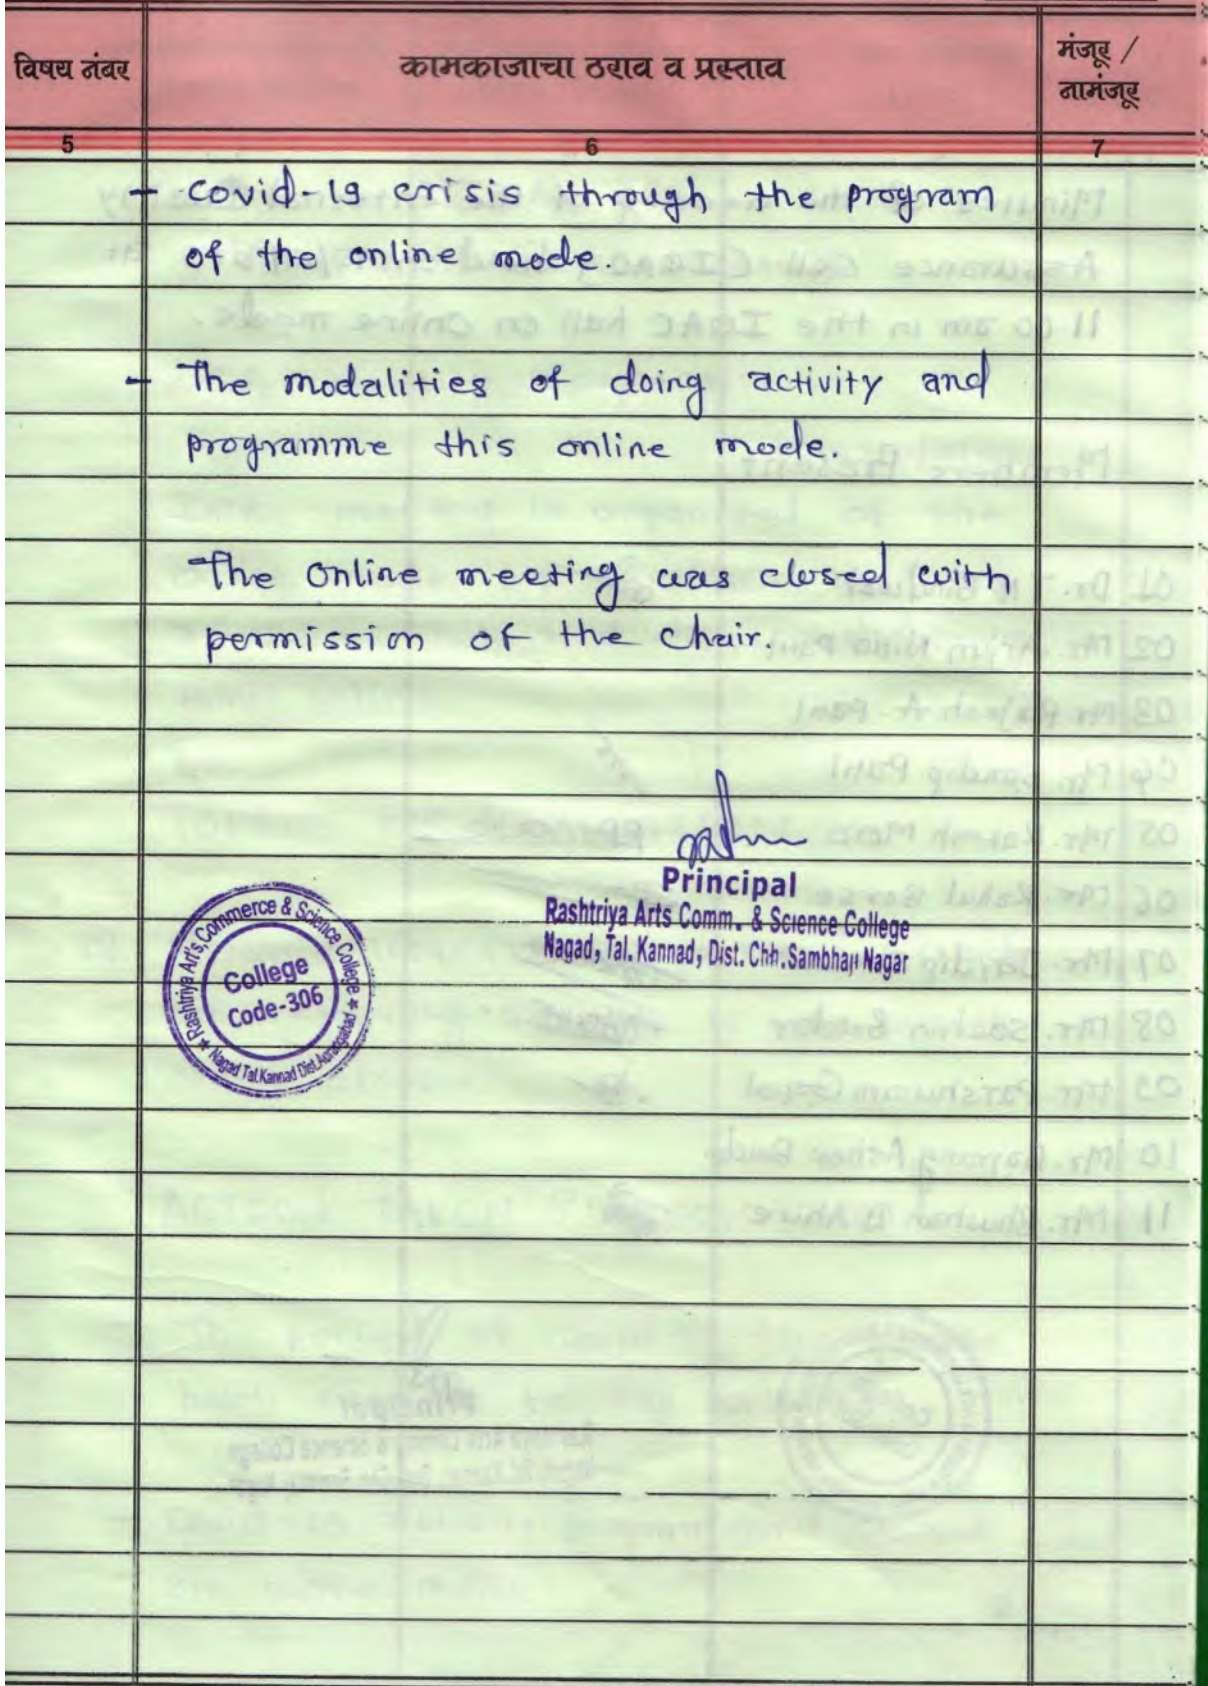 विषय नंबर
कामकाजाचा ठराव व प्रस्ताव
मंजूर /
नामंजूर
5
6
7
- Covid-19 crisis through the program
of the online mode.
- The modalities of doing activity and
programme this online mode.
The online meeting was closed with
permission of the Chair.
Principal
Rashtriya Arts Comm. & Science College
Nagad, Tal. Kannad, Dist. Chh. Sambhaji Nagar
Rashtriya Art's, Commerce & Science College
College
Code-306
Nagad Tal.Kannad Dist.Aurangabad